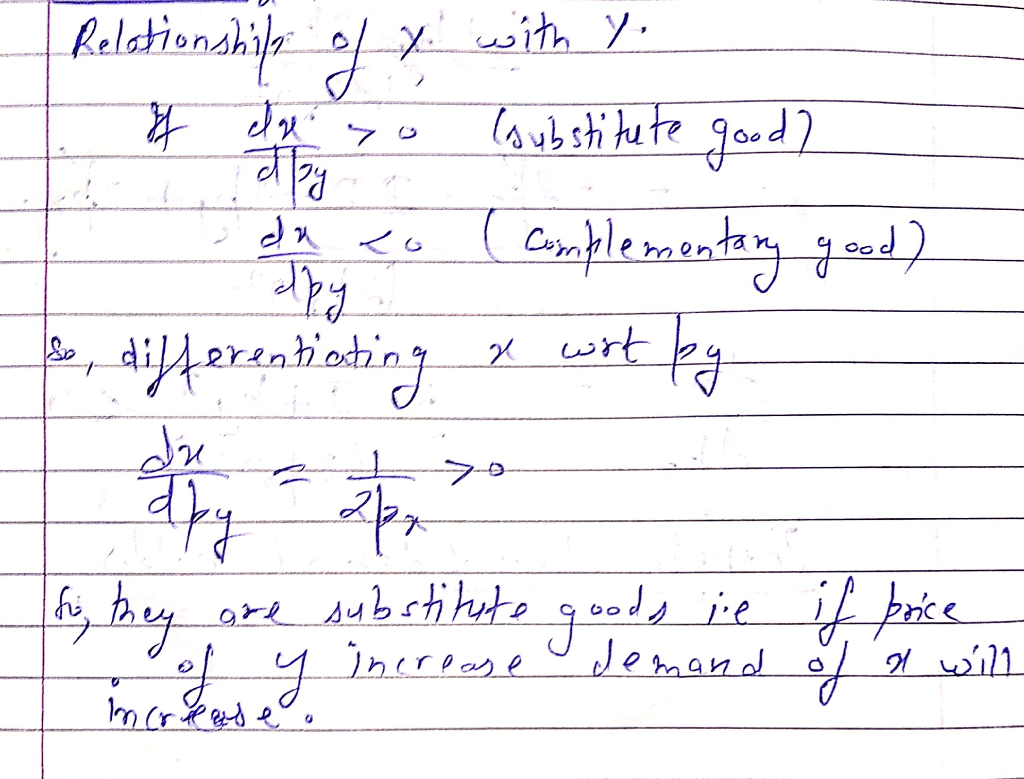 Relationship of X with Y.
If dx/dpy > 0 (substitute good)
dx/dpy < 0 (Complementary good)
So, differentiating x wrt py
dx/dpy = 1/2px > 0
So, they are substitute goods i.e if price
of y increase demand of x will
increase.